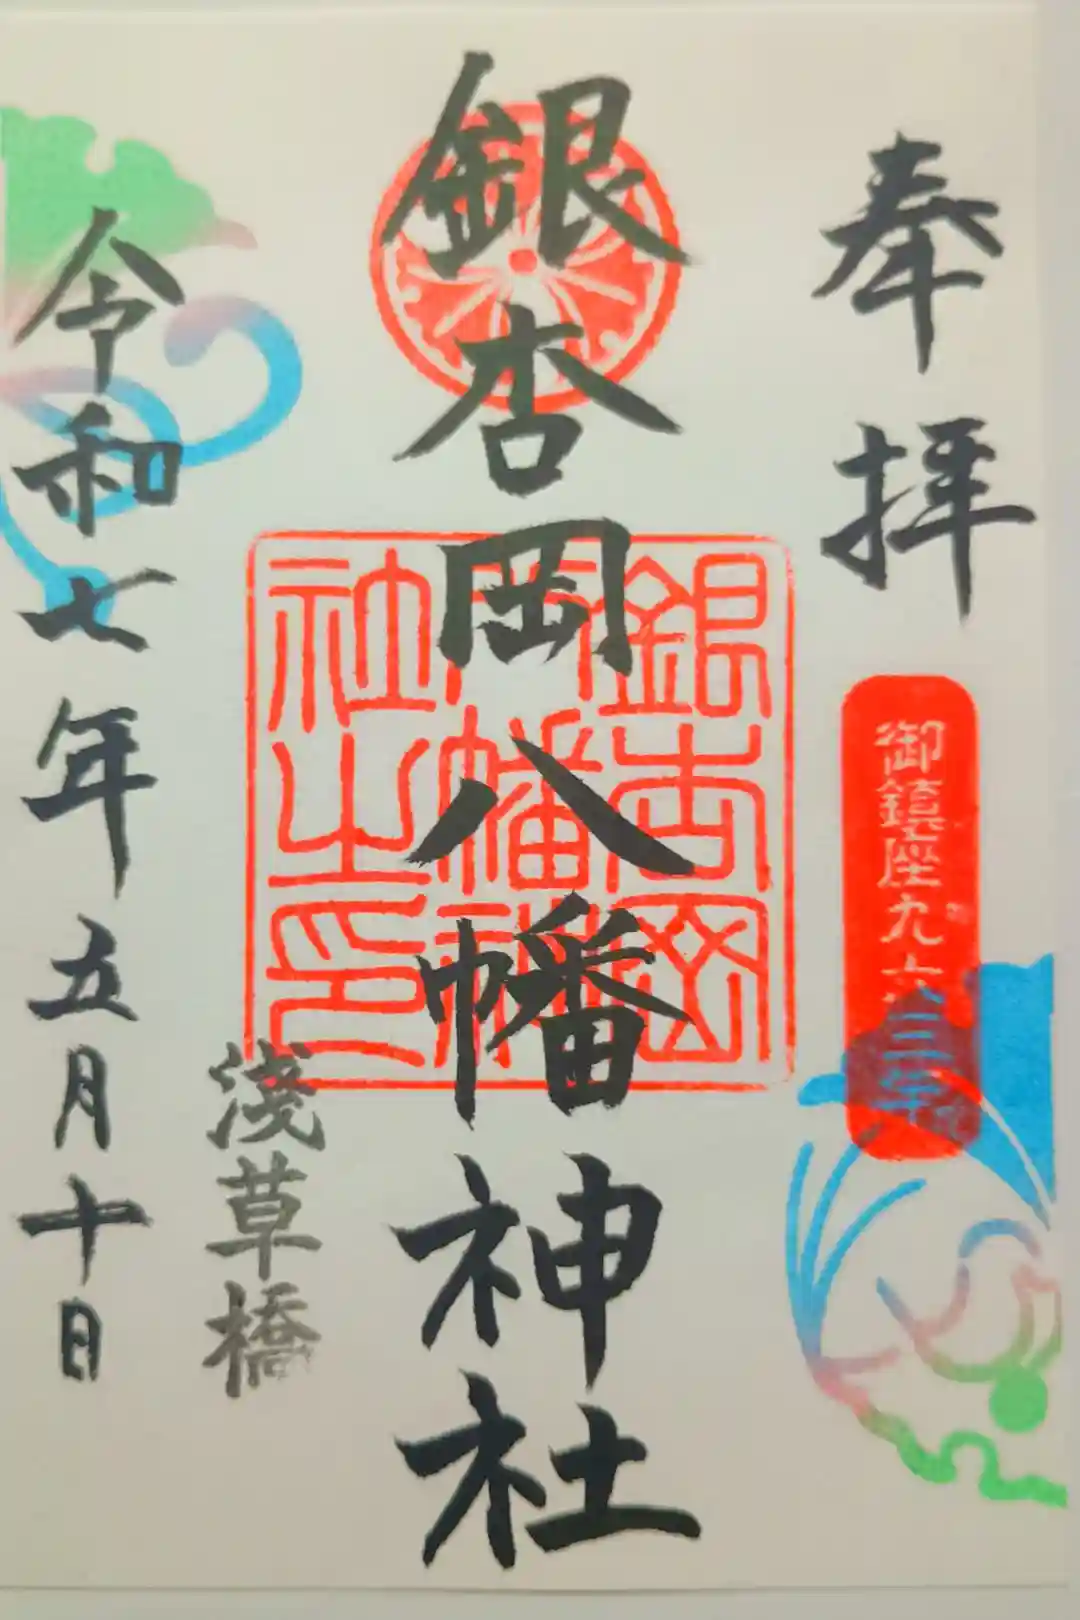 奉拝
御鎮座九六三年
銀杏岡八幡神社
銀杏岡
八幡神
社之印
淺草橋
令和七年五月十日